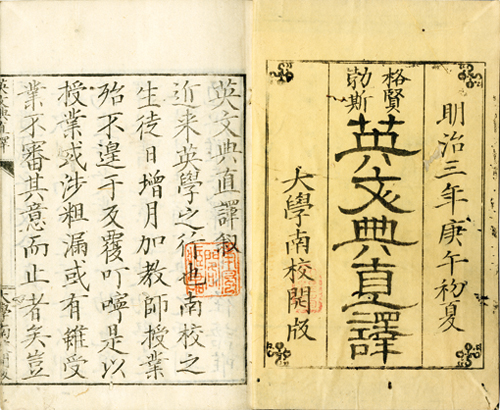 明治三年庚午初夏
格賢
勃斯
英文典直譯
大學南校開版
英文典直譯叙
近来英學之行也南校之
生徒日增月加教師授業
殆不遑于反覆叮嚀是以
授業或涉粗漏或有雖受
業不審其意而止者矣豈
英文典直譯